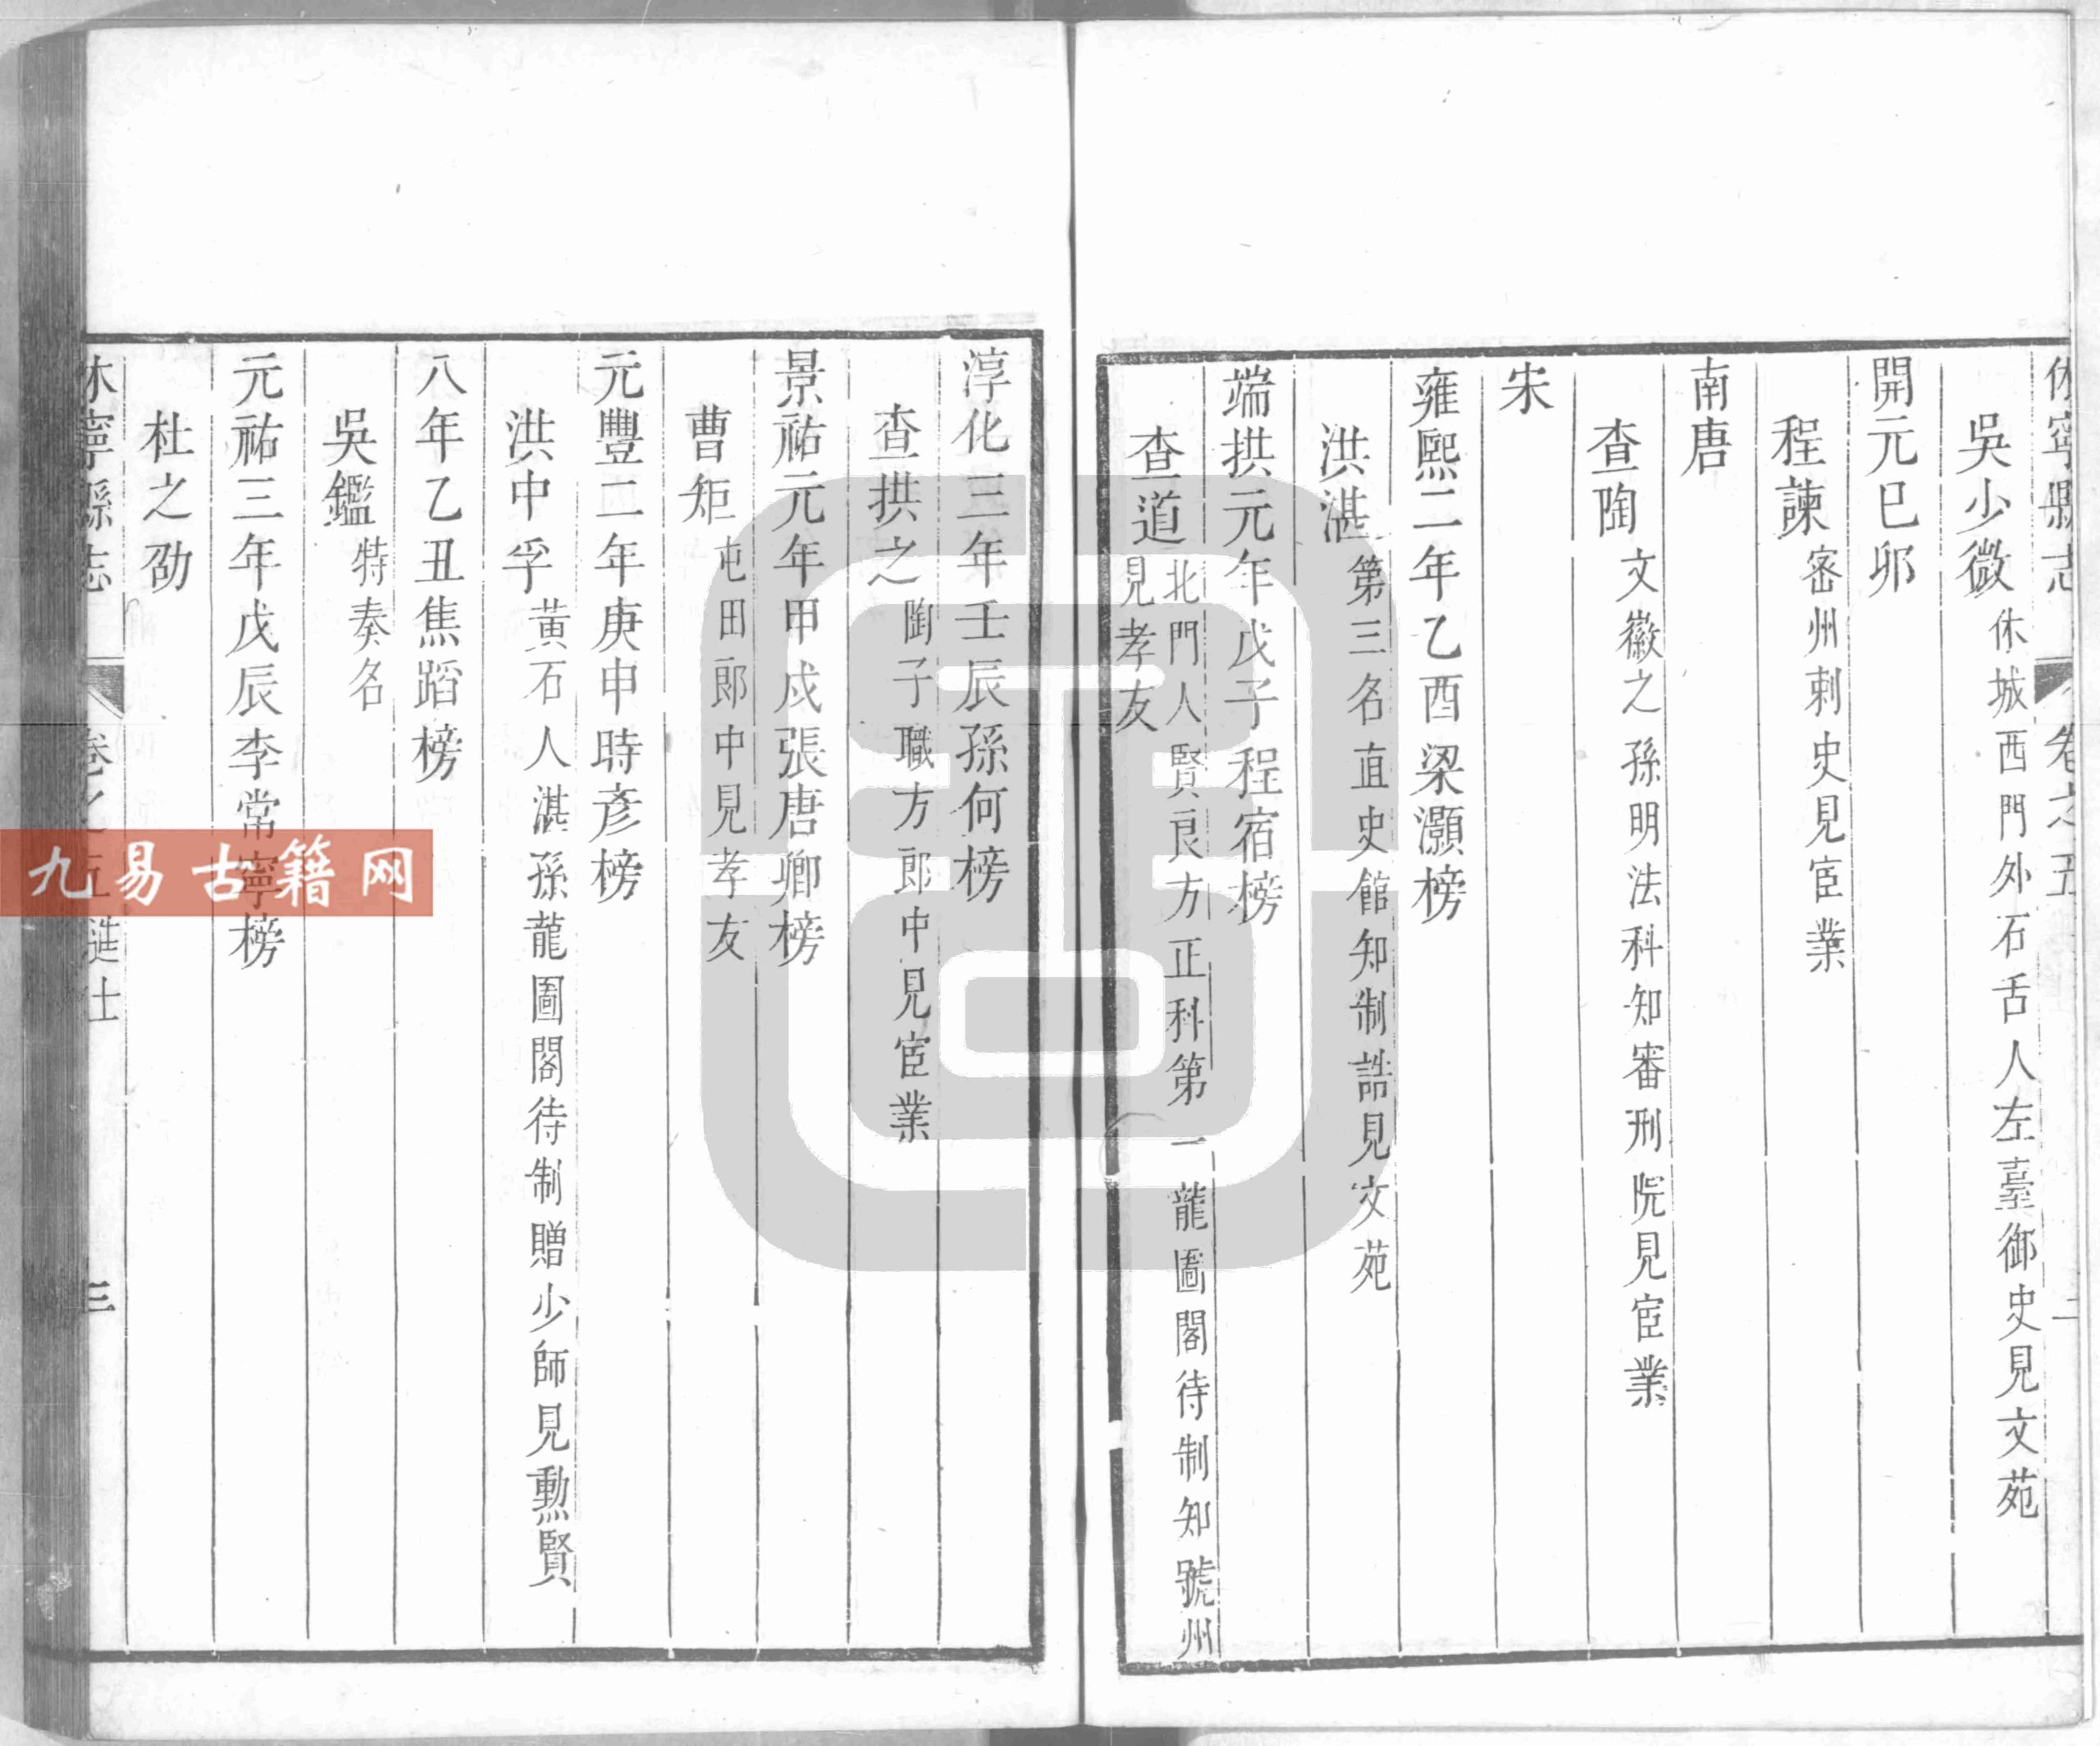 休寧縣志 卷之五 二
吳少微 休城西門外石舌人左臺御史見文苑
開元已卯
程諫 密州刺史見宦業
南唐
查陶 文徽之孫明法科知審刑院見宦業
宋
雍熙二年乙酉梁灝榜
洪湛 第三名直史館知制誥見文苑
端拱元年戊子程宿榜
查道 北門人賢良方正科第一龍圖閣待制知號州
見孝友
淳化三年壬辰孫何榜
查拱之 陶子職方郎中見宦業
景祐元年甲戌張唐卿榜
曹矩 屯田郎中見孝友
元豐二年庚申時彥榜
洪中孚 黃石人湛孫龍圖閣待制贈少師見勳賢
八年乙丑焦蹈榜
吳鑑 特奏名
元祐三年戊辰李常寧榜
杜之劭
休寧縣志 卷之五 進士 三
九易古籍网